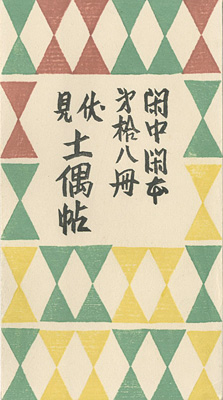 閑中閑本
第拾八冊
伏見
土偶帖